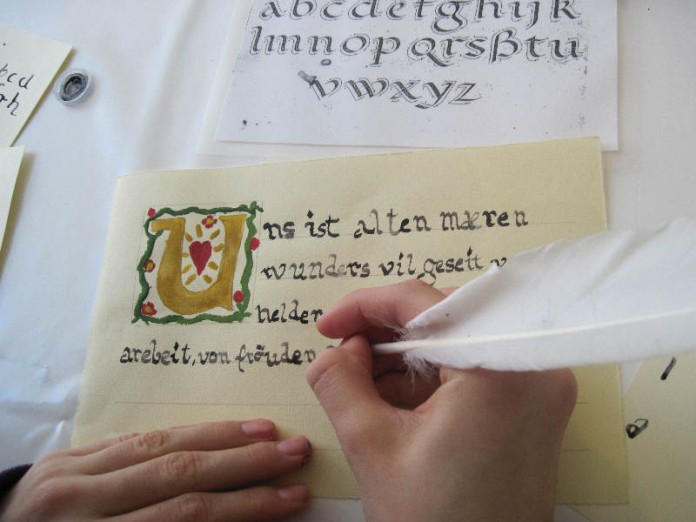 abcdefghijk
lmnopqrsßtu
vwxyz
Uns ist alten mæren
wunders vil geseit
helder
arebeit, von fröuden